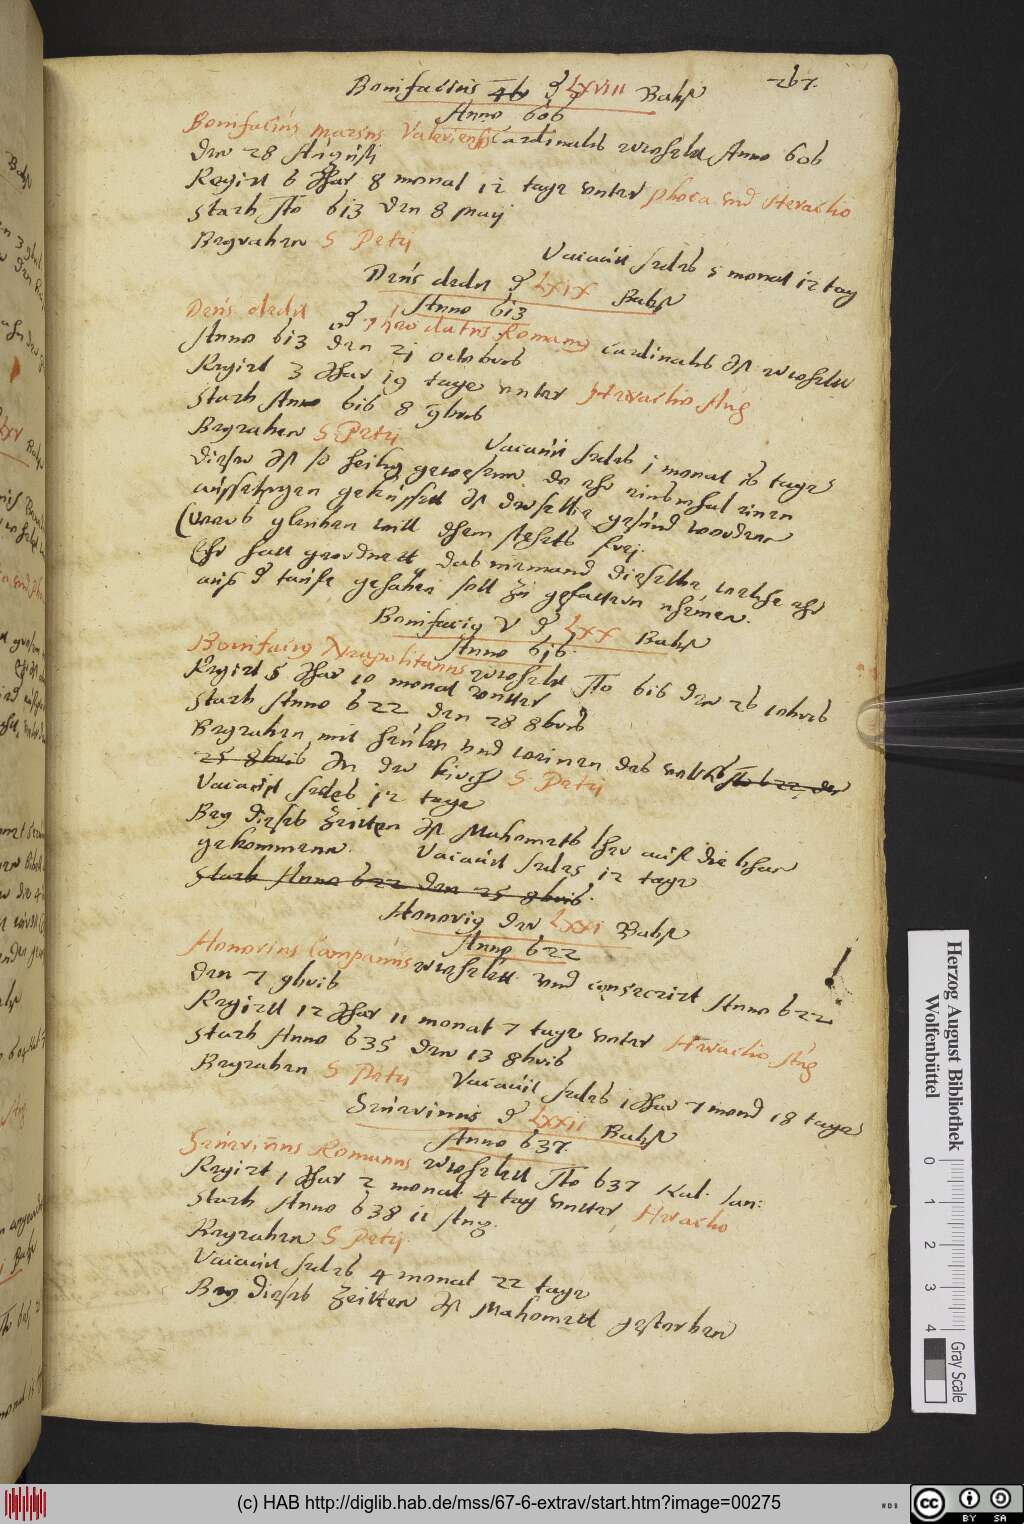 267.
Bonifacius 4ter der LXVIII Babst
Anno 606
Bonifacius marsus Valeriensis Cardinalis erwehlet Anno 606
den 28 Augusti
Regirt 6 Jhar 8 monat 12 tage unter phoca und Heraclio
starb Ao 613 den 8 Maij
Begraben S Petrj
Vaciirt sedes 5 monat 12 tag
Deus dedit der LXIX Babst
Anno 613
Deus dedit Romanus Cardinalis ist erwehlet
Anno 613 den 21 octobris
Regirt 3 Jhar 19 tage unter Heraclio Aug
starb Anno 616 8 9bris
Begraben S Petrj
Vaciirt sedes 1 monat 16 tage
Dieser ist so heilig gewesenn, da ehr einsmhal einen
aussetzigen gekusset ist derselbe gesund worden
glauben will dhem stehets frej.
Ehr hatt geordnett das niemand dieselbe welche ehr
aus der taufe gehaben soll zu gefattern nhemen.
Bonifacius V der LXX Babst
Anno 616.
Bonifacius Neapolitanus erwehlet Ao 616 den 26 10bris
Regirt 5 Jhar 10 monat unter
starb Anno 622 den 28 8bris
Begraben mit heulen und weinen des volks Ao 622, den
25 8bris In der kirch S Petrj
Vaciirt sedes 12 tage
Bey dieses Zeitten ist Mahomets lher auf die bhan
gekommenn. Vaciirt sedes 12 tage
starb Anno 622 den 25 8bris.
Honorius der LXXI Babst
Anno 622
Honorius Campanus erwehlett und consecrirt Anno 622
den 7 9bris
Regirtt 12 Jhar 11 monat 7 tage unter Heraclio Aug
starb Anno 635 den 13 8bris
Begraben S Petrj Vaciirt sedes 1 Jhar 7 mond 18 tage
Seuerinus der LXXII Babst
Anno 637.
Seuerinus Romanus erwehlett Ao 637 Kal. Ian:
Regirt 1 Jhar 2 monat 4 tag unter Heraclio
starb Anno 638 11 Aug.
Begraben S Petrj
Vaciirt sedes 4 monat 22 tage
Bey dieses Zeitten ist Mahomett gestorben
Herzog August Bibliothek
Wolfenbüttel
0 1 2 3 4
Gray Scale
(c) HAB http://diglib.hab.de/mss/67-6-extrav/start.htm?image=00275
WDB
cc BY SA